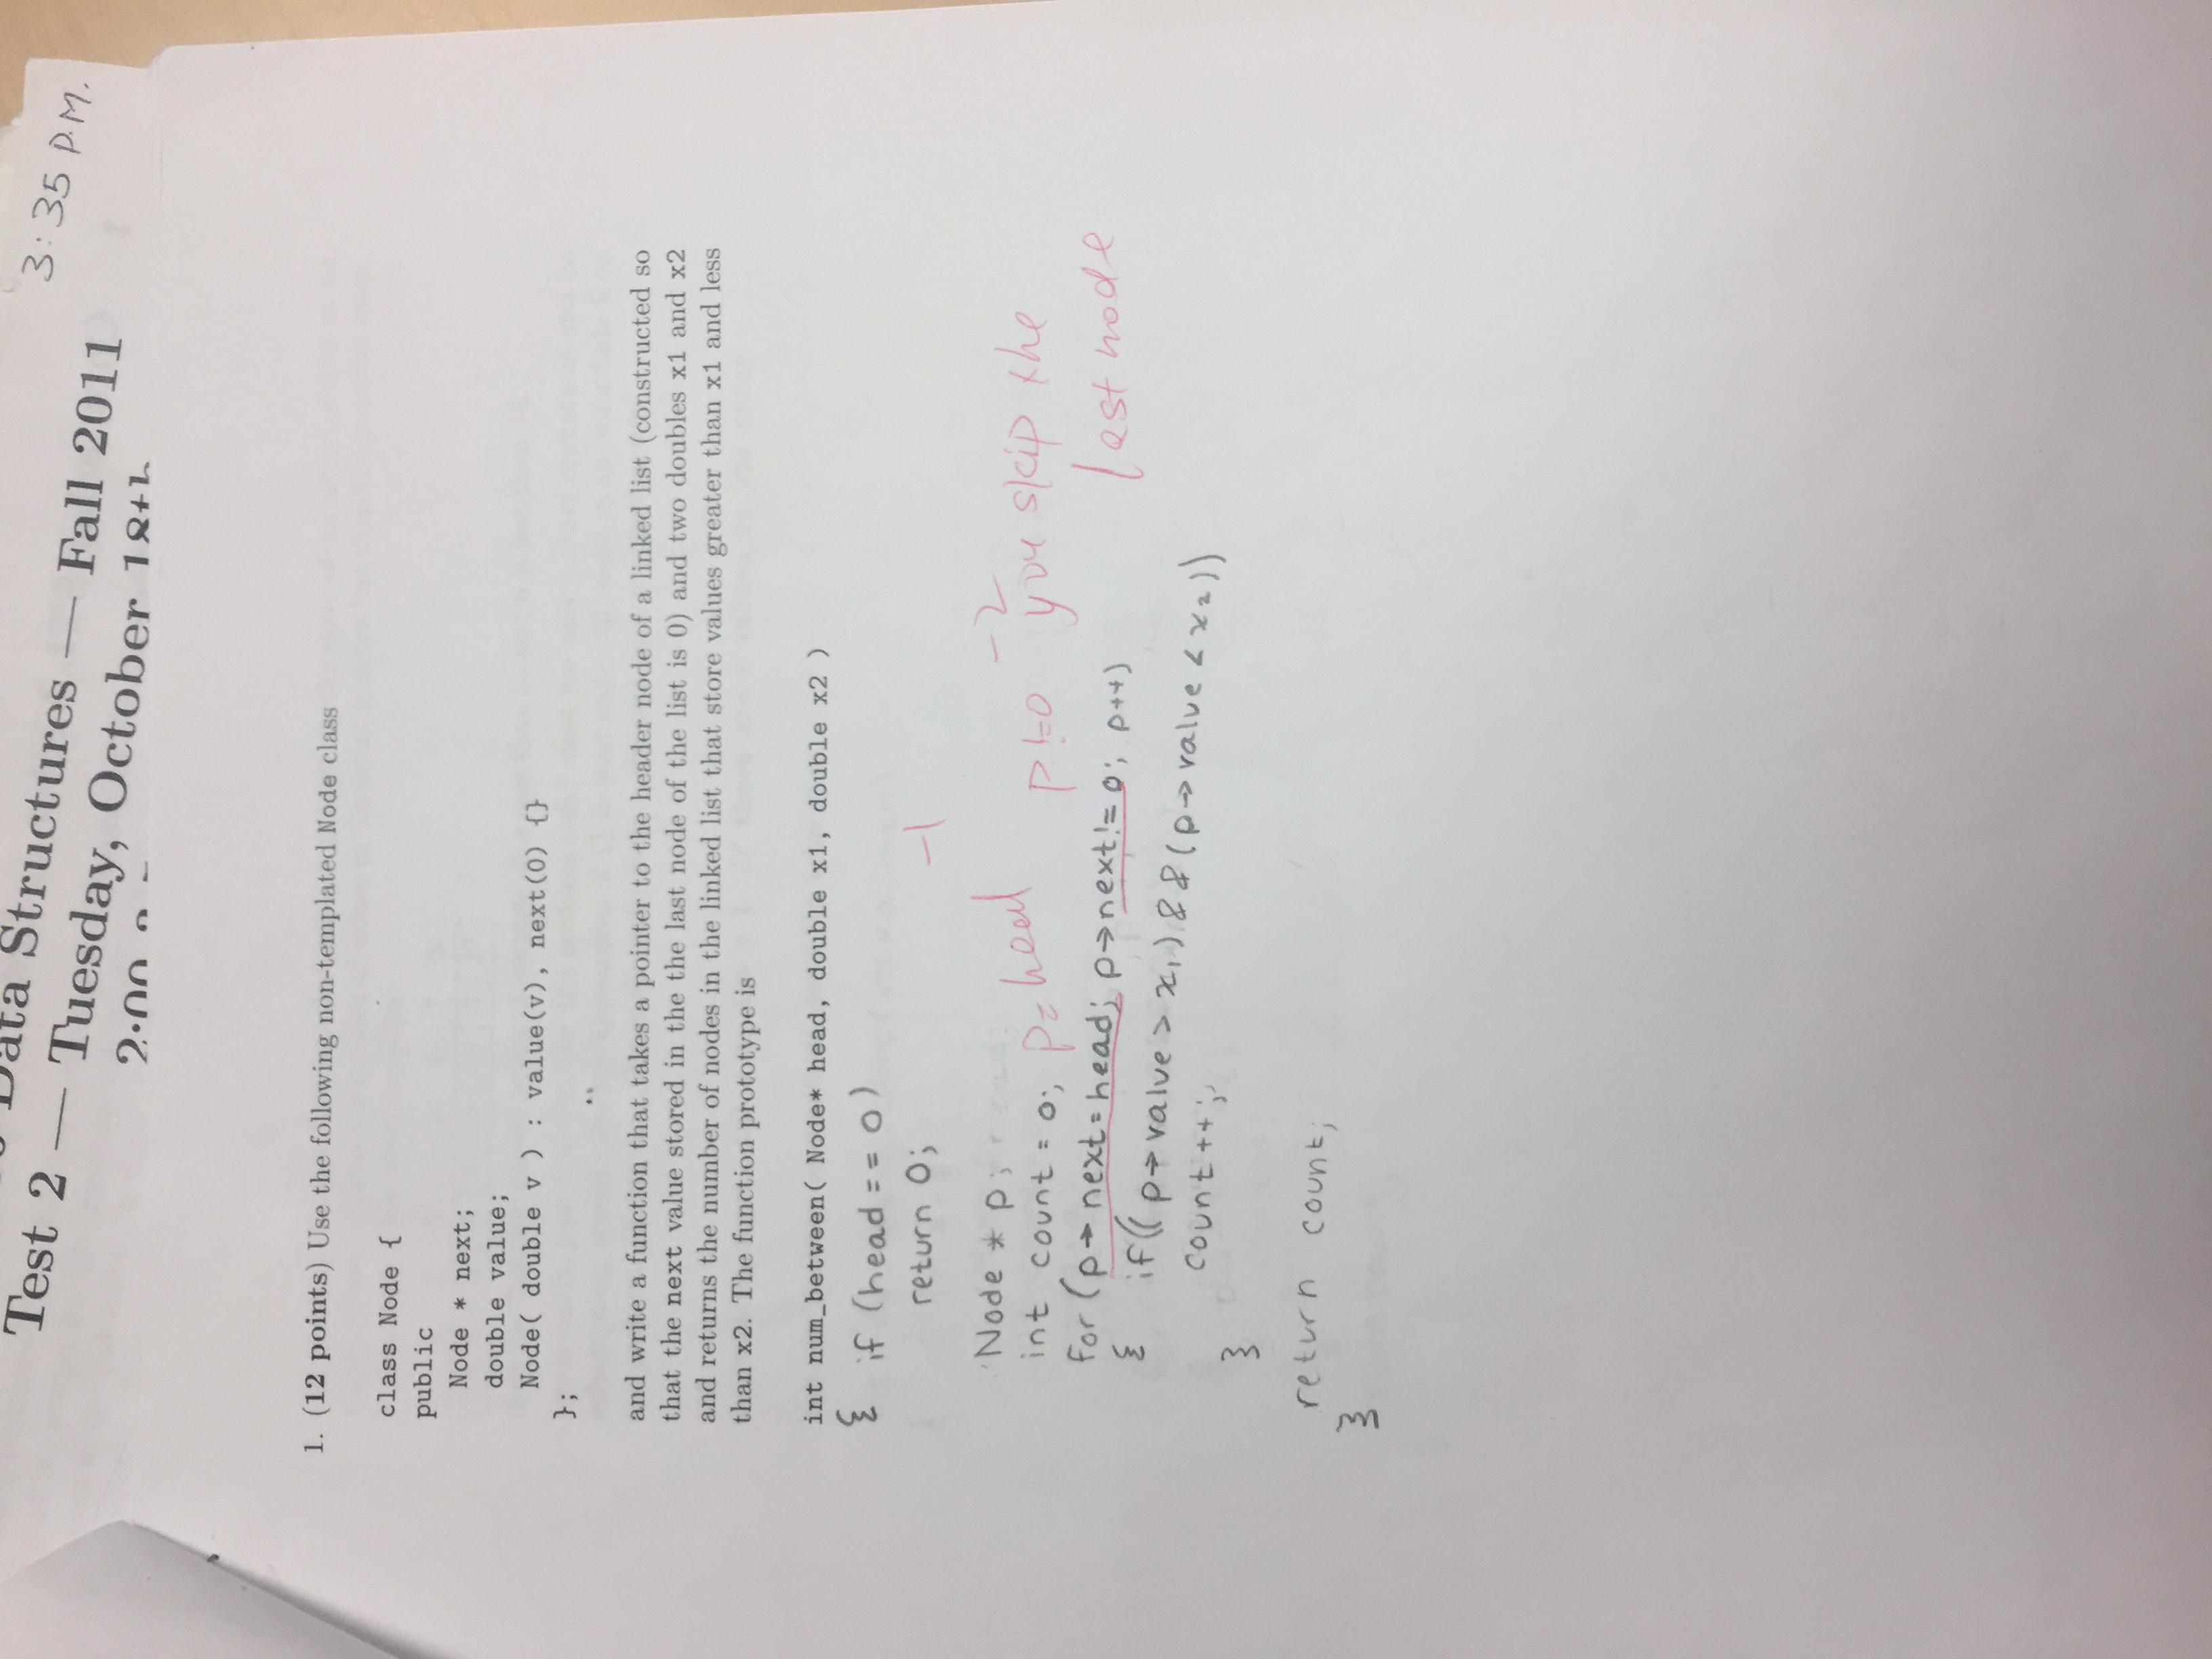 Data Structures — Fall 2011
3:35 P.M.
Test 2 — Tuesday, October 18th
2:00
1. (12 points) Use the following non-templated Node class
class Node {
public
Node * next;
double value;
Node( double v ) : value(v), next(0) {}
};
and write a function that takes a pointer to the header node of a linked list (constructed so
that the next value stored in the the last node of the list is 0) and two doubles x1 and x2
and returns the number of nodes in the linked list that store values greater than x1 and less
than x2. The function prototype is
int num_between( Node* head, double x1, double x2 )
{ if (head == 0)
return 0;
-1
Node * p;
int count = 0;
p=head
p!=0
-2
you skip the
last node
for (p→next=head; p→next!=0; p++)
{ if((p→value > x1) && (p→value < x2))
count++;
}
return count;
}